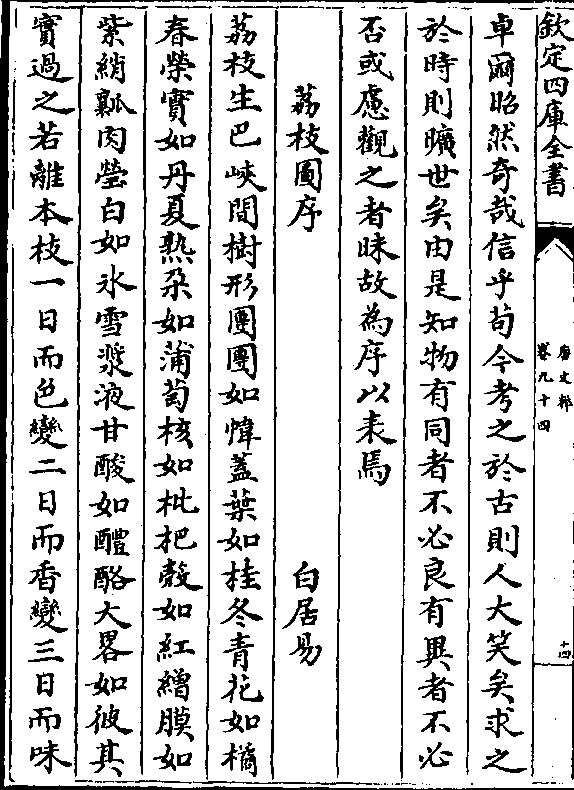 欽定四庫全書
唐文粹
卷九十四
十四
卓爾昭然奇哉信乎苟今考之於古則人大笑矣求之
於時則曠世矣由是知物有同者不必良有異者不必
否或慮觀之者昧故為序以表焉
荔枝圖序 白居易
荔枝生巴峽間樹形團團如帷蓋葉如桂冬青花如橘
春榮實如丹夏熟朶如蒲萄核如枇把殼如紅繒膜如
紫綃瓤肉瑩白如氷雪漿液甘酸如醴酪大畧如彼其
實過之若離本枝一日而色變二日而香變三日而味